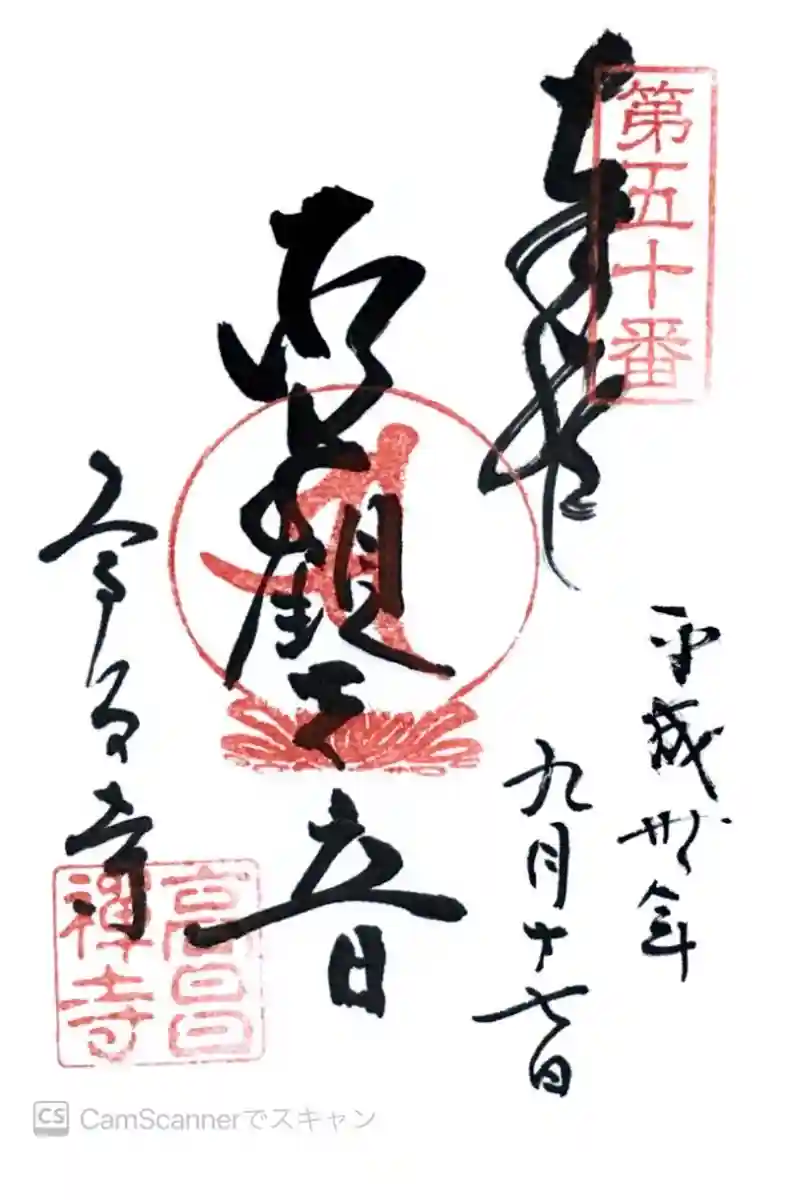 第五十番
奉拝
平成卅年
九月十七日
観世音
高昌寺
高昌
禪寺
CS CamScannerでスキャン